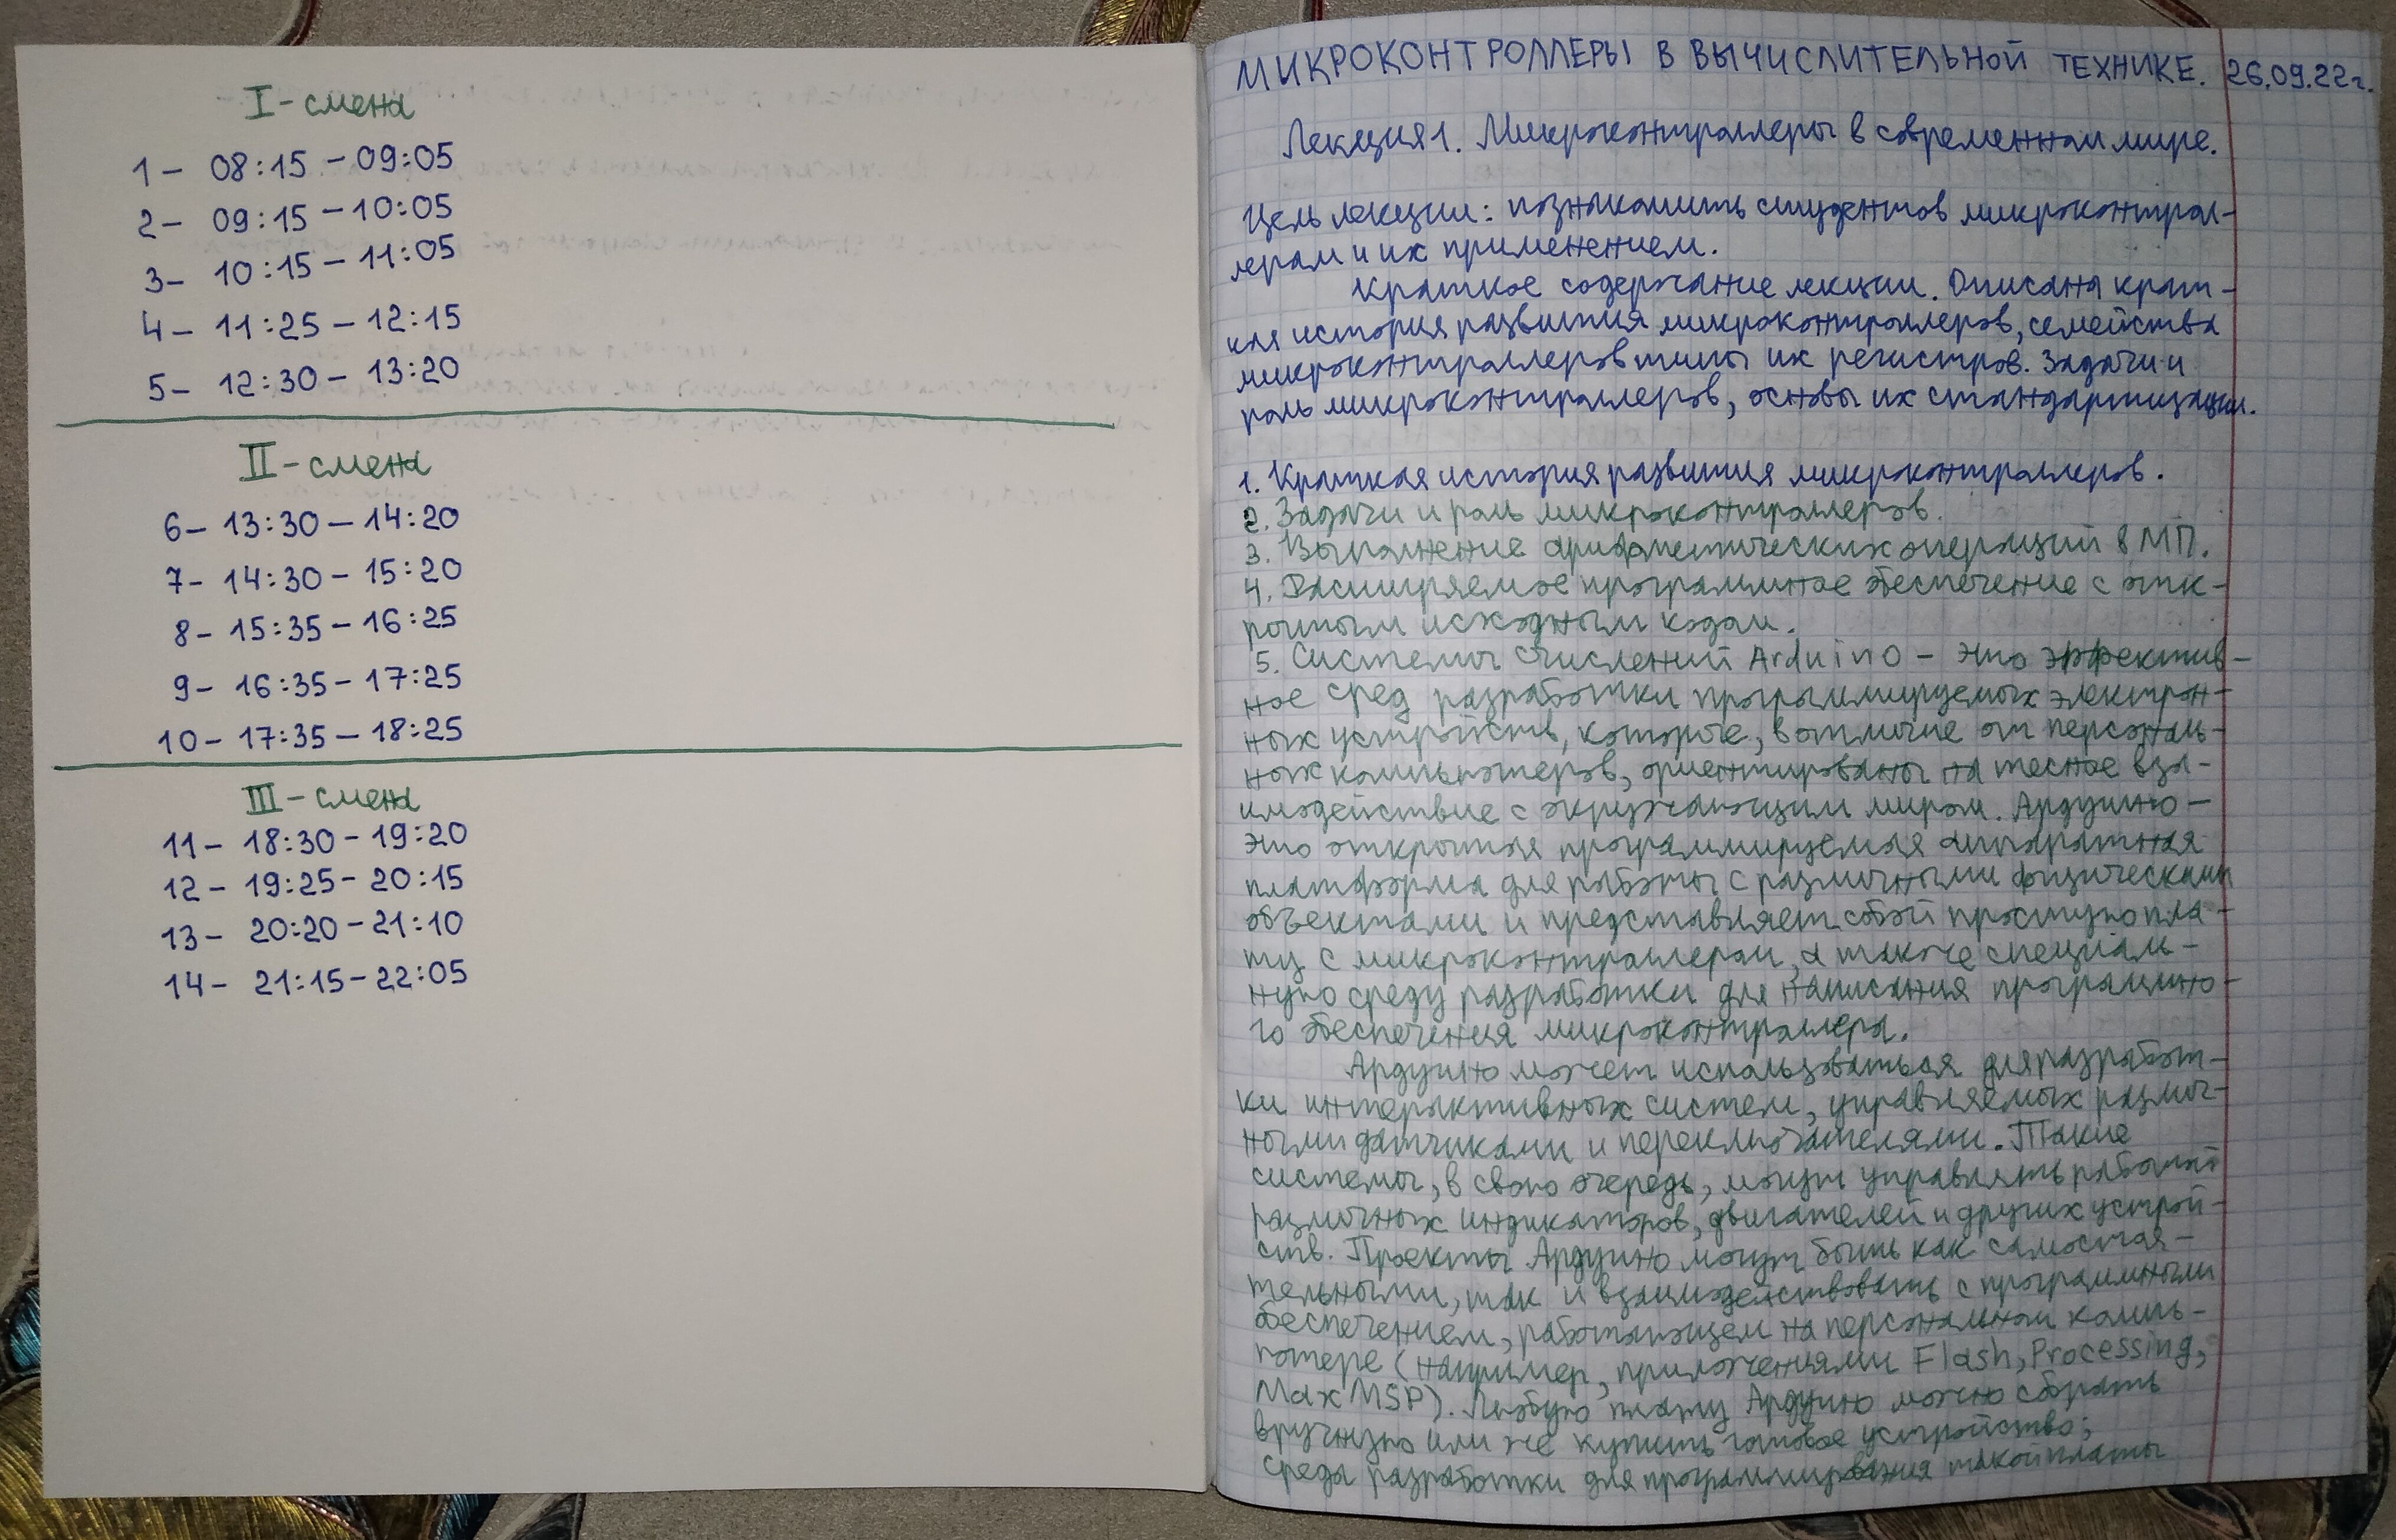 I - смена
1 - 08:15 - 09:05
2 - 09:15 - 10:05
3 - 10:15 - 11:05
4 - 11:25 - 12:15
5 - 12:30 - 13:20
II - смена
6 - 13:30 - 14:20
7 - 14:30 - 15:20
8 - 15:35 - 16:25
9 - 16:35 - 17:25
10 - 17:35 - 18:25
III - смена
11 - 18:30 - 19:20
12 - 19:25 - 20:15
13 - 20:20 - 21:10
14 - 21:15 - 22:05
МИКРОКОНТРОЛЛЕРЫ В ВЫЧИСЛИТЕЛЬНОЙ ТЕХНИКЕ. 26.09.22г.
Лекция 1. Микроконтроллеры в современном мире.
Цель лекции: познакомить студентов микроконтрол-
лерам и их применением.
Краткое содержание лекции. Описана крат-
кая история развития микроконтроллеров, семейства
микроконтроллеров типы их регистров. Задачи и
роль микроконтроллеров, основы их стандартизации.
1. Краткая история развития микроконтроллеров.
2. Задачи и роль микроконтроллеров.
3. Выполнение арифметических операций в МП.
4. Расширяемое программное обеспечение с отк-
рытым исходным кодом.
5. Системы счислений Arduino - это эффектив-
ное сред разработки программируемых электрон-
ных устройств, которое, в отличие от персональ-
ных компьютеров, ориентированы на тесное вза-
имодействие с окружающим миром. Ардуино -
это открытая программируемая аппаратная
платформа для работы с различными физическими
объектами и представляет собой простую пла-
ту с микроконтроллером, а также специаль-
ную среду разработки для написания программно-
го обеспечения микроконтроллера.
Ардуино может использоваться для разработ-
ки интерактивных систем, управляемых различ-
ными датчиками и переключателями. Такие
системы, в свою очередь, могут управлять работой
различных индикаторов, двигателей и других устрой-
ств. Проекты Ардуино могут быть как самостоя-
тельными, так и взаимодействовать с программными
обеспечением, работающем на персональном компь-
ютере (например, приложениями Flash, Processing,
MaxMSP). Любую плату Ардуино можно собрать
вручную или же купить готовое устройство;
среда разработки для программирования такой платы